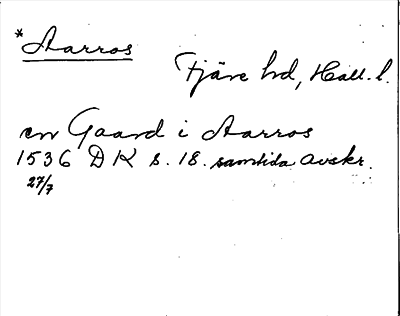 * Aarros
Fjäre hd, Hall. l.
en Gaard i Aarros
1536 DK s. 18. samtida avskr.
27/7